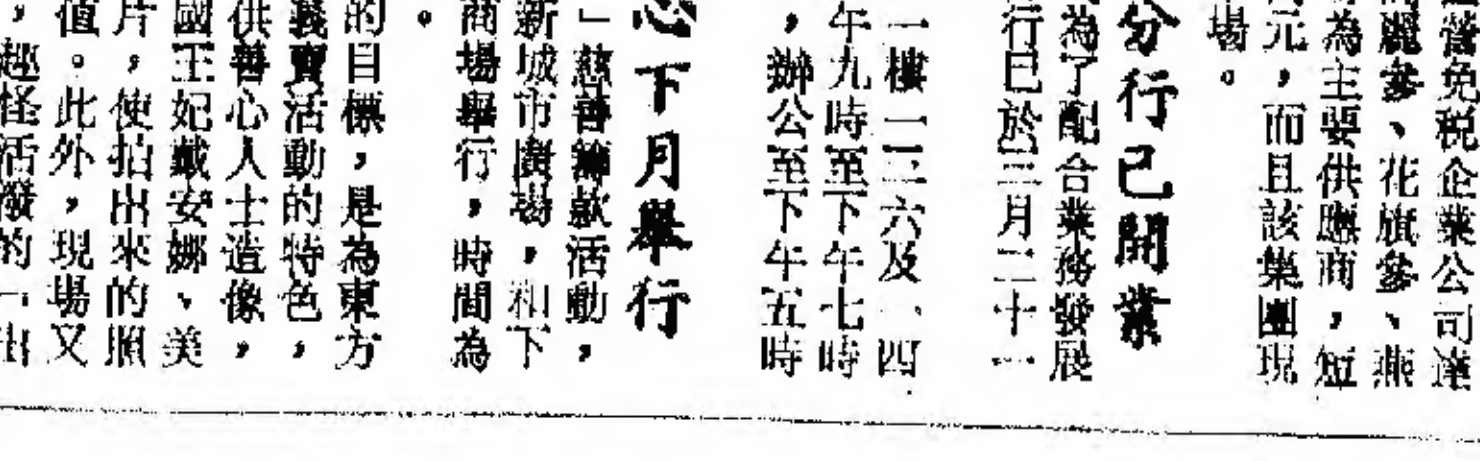 營免税企業公司達
麗參、花旗參、燕
為主要供應商，短
元，而且該集團現
場。
分行已開業
為了配合業務發展
行已於三月二十一
一樓一二三六及、四
午九時至下午七時
，辦公至下午五時
心下月舉行
」慈善籌款活動，
新城市廣場，和下
商場舉行，時間為
。
的目標，是為東方
義賣活動的特色，
供善心人士造像，
國王妃戴安娜、美
片，使拍出來的照
值。此外，現場又
，趣怪活潑的「出